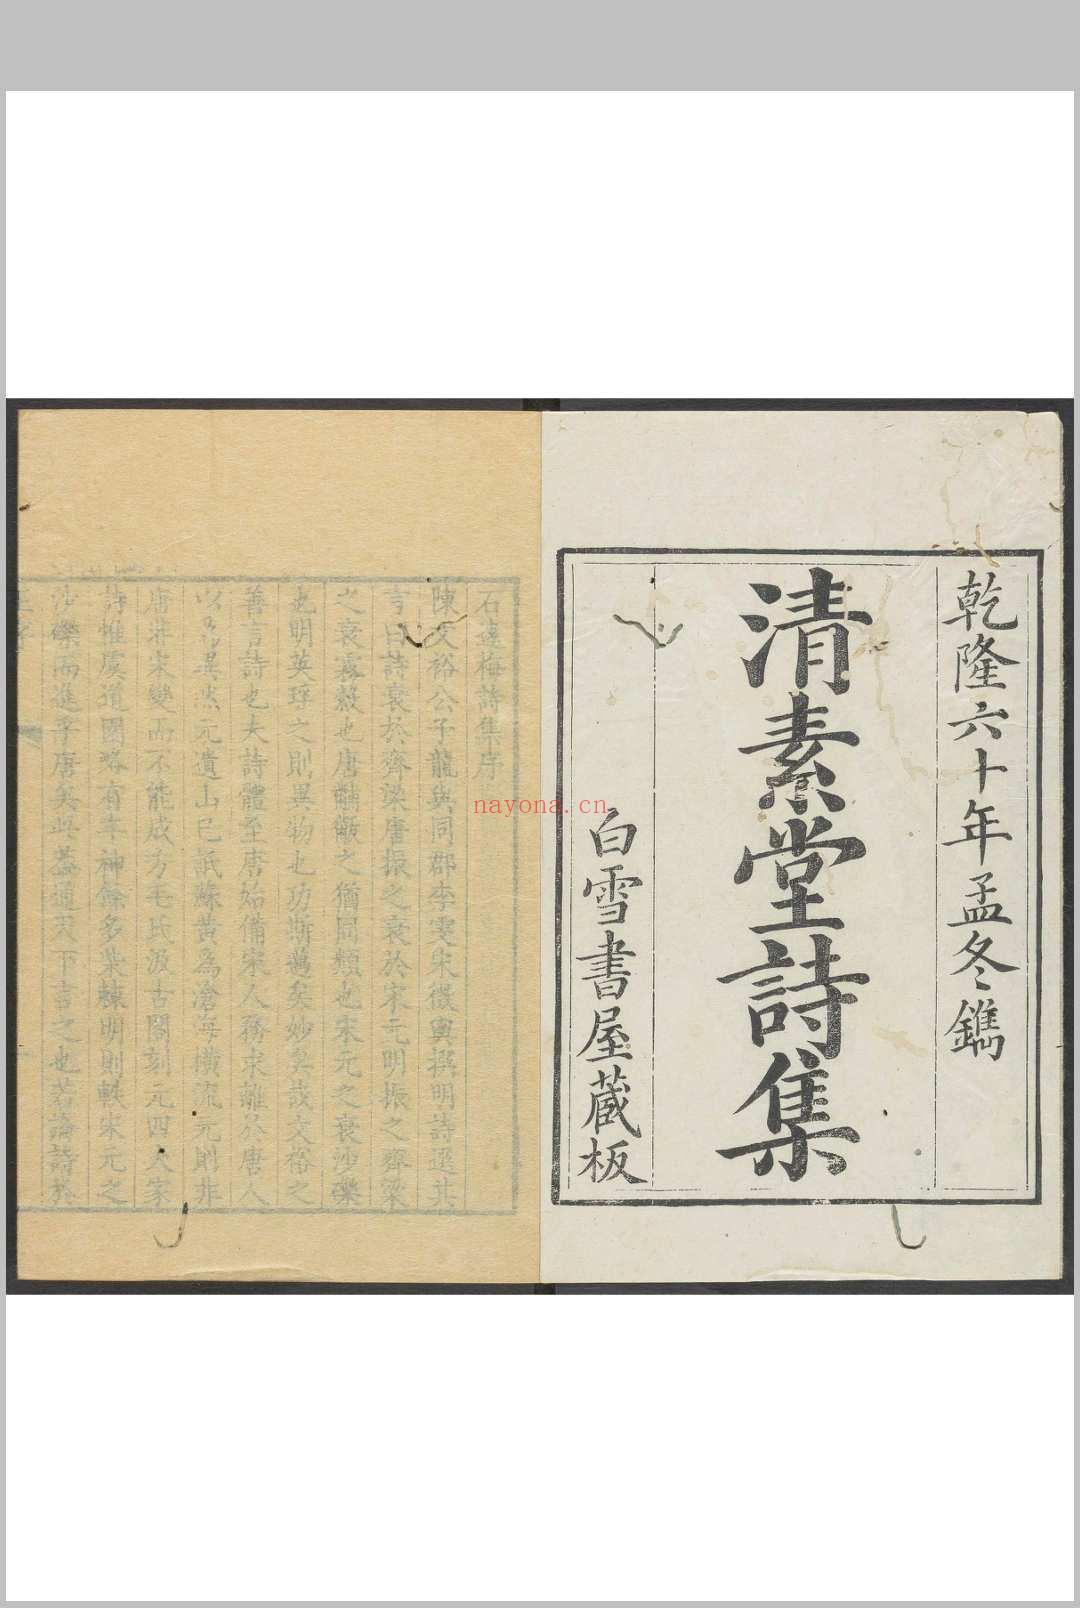 乾隆六十年孟冬鐫
清素堂詩集
白雪書屋藏板
nayona.cn
石遠梅詩集序
陳文裕公子龍與同郡李雯宋徵輿撰明詩選其
言曰詩衰於齊梁唐振之衰於宋元明振之齊梁
之衰霧縠也唐黼黻之猶同類也宋元之衰沙礫
也明英琈之則異物也功斯邁矣妙矣哉文裕之
善言詩也夫詩體至唐始備宋人務求離於唐人
以為異然元遺山已詆蘇黃為滄海橫流元則非
唐非宋變而不能成方毛氏汲古閣刻元四大家
詩惟虞道園略有李神餘多柴棘明則軼宋元之
沙礫而進乎唐矣此蓋通天下言之也若論詩於